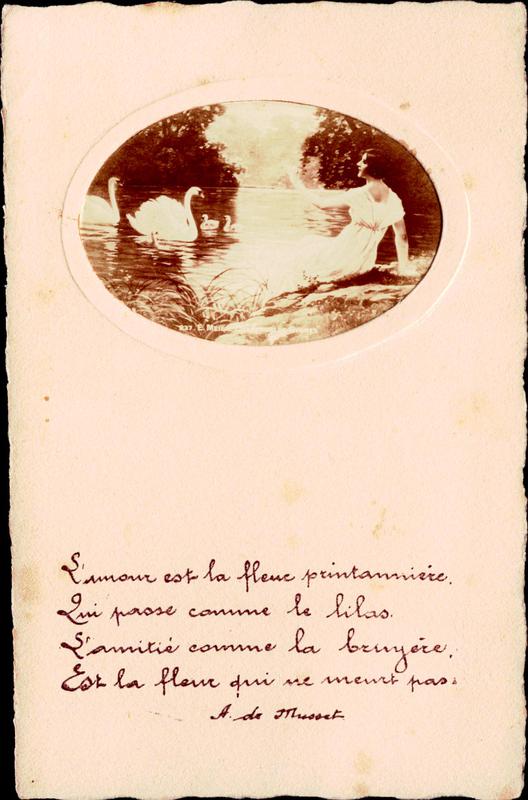 237. E.
L'amour est la fleur printannière.
Qui passe comme le lilas.
L'amitié comme la bruyère,
Est la fleur qui ne meurt pas.
A. de Musset